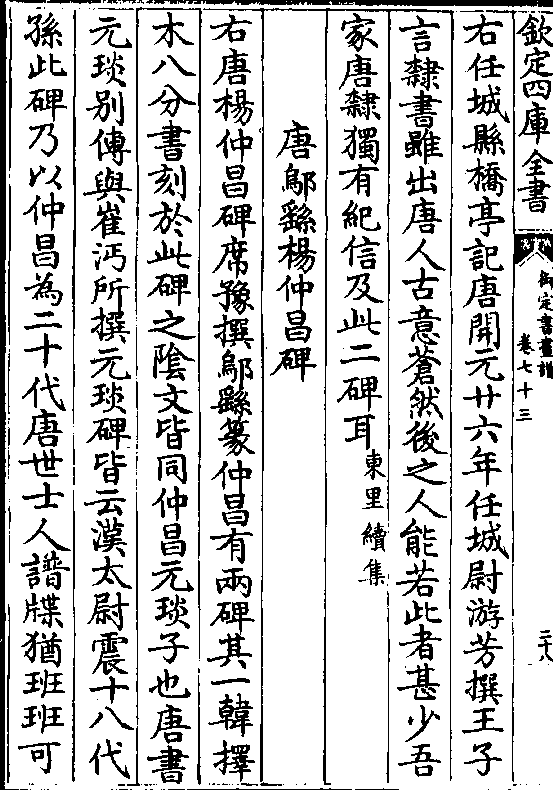 欽定四庫全書
御定書畫譜
卷七十三
二十八
右任城縣橋亭記唐開元廿六年任城尉游芳撰王子
言隸書雖出唐人古意蒼然後之人能若此者甚少吾
家唐隸獨有紀信及此二碑耳東里續集
唐鄔繇楊仲昌碑
右唐楊仲昌碑席豫撰鄔繇篆仲昌有兩碑其一韓擇
木八分書刻於此碑之陰文皆同仲昌元琰子也唐書
元琰别傳與崔沔所撰元琰碑皆云漢太尉震十八代
孫此碑乃以仲昌為二十代唐世士人譜牒猶班班可